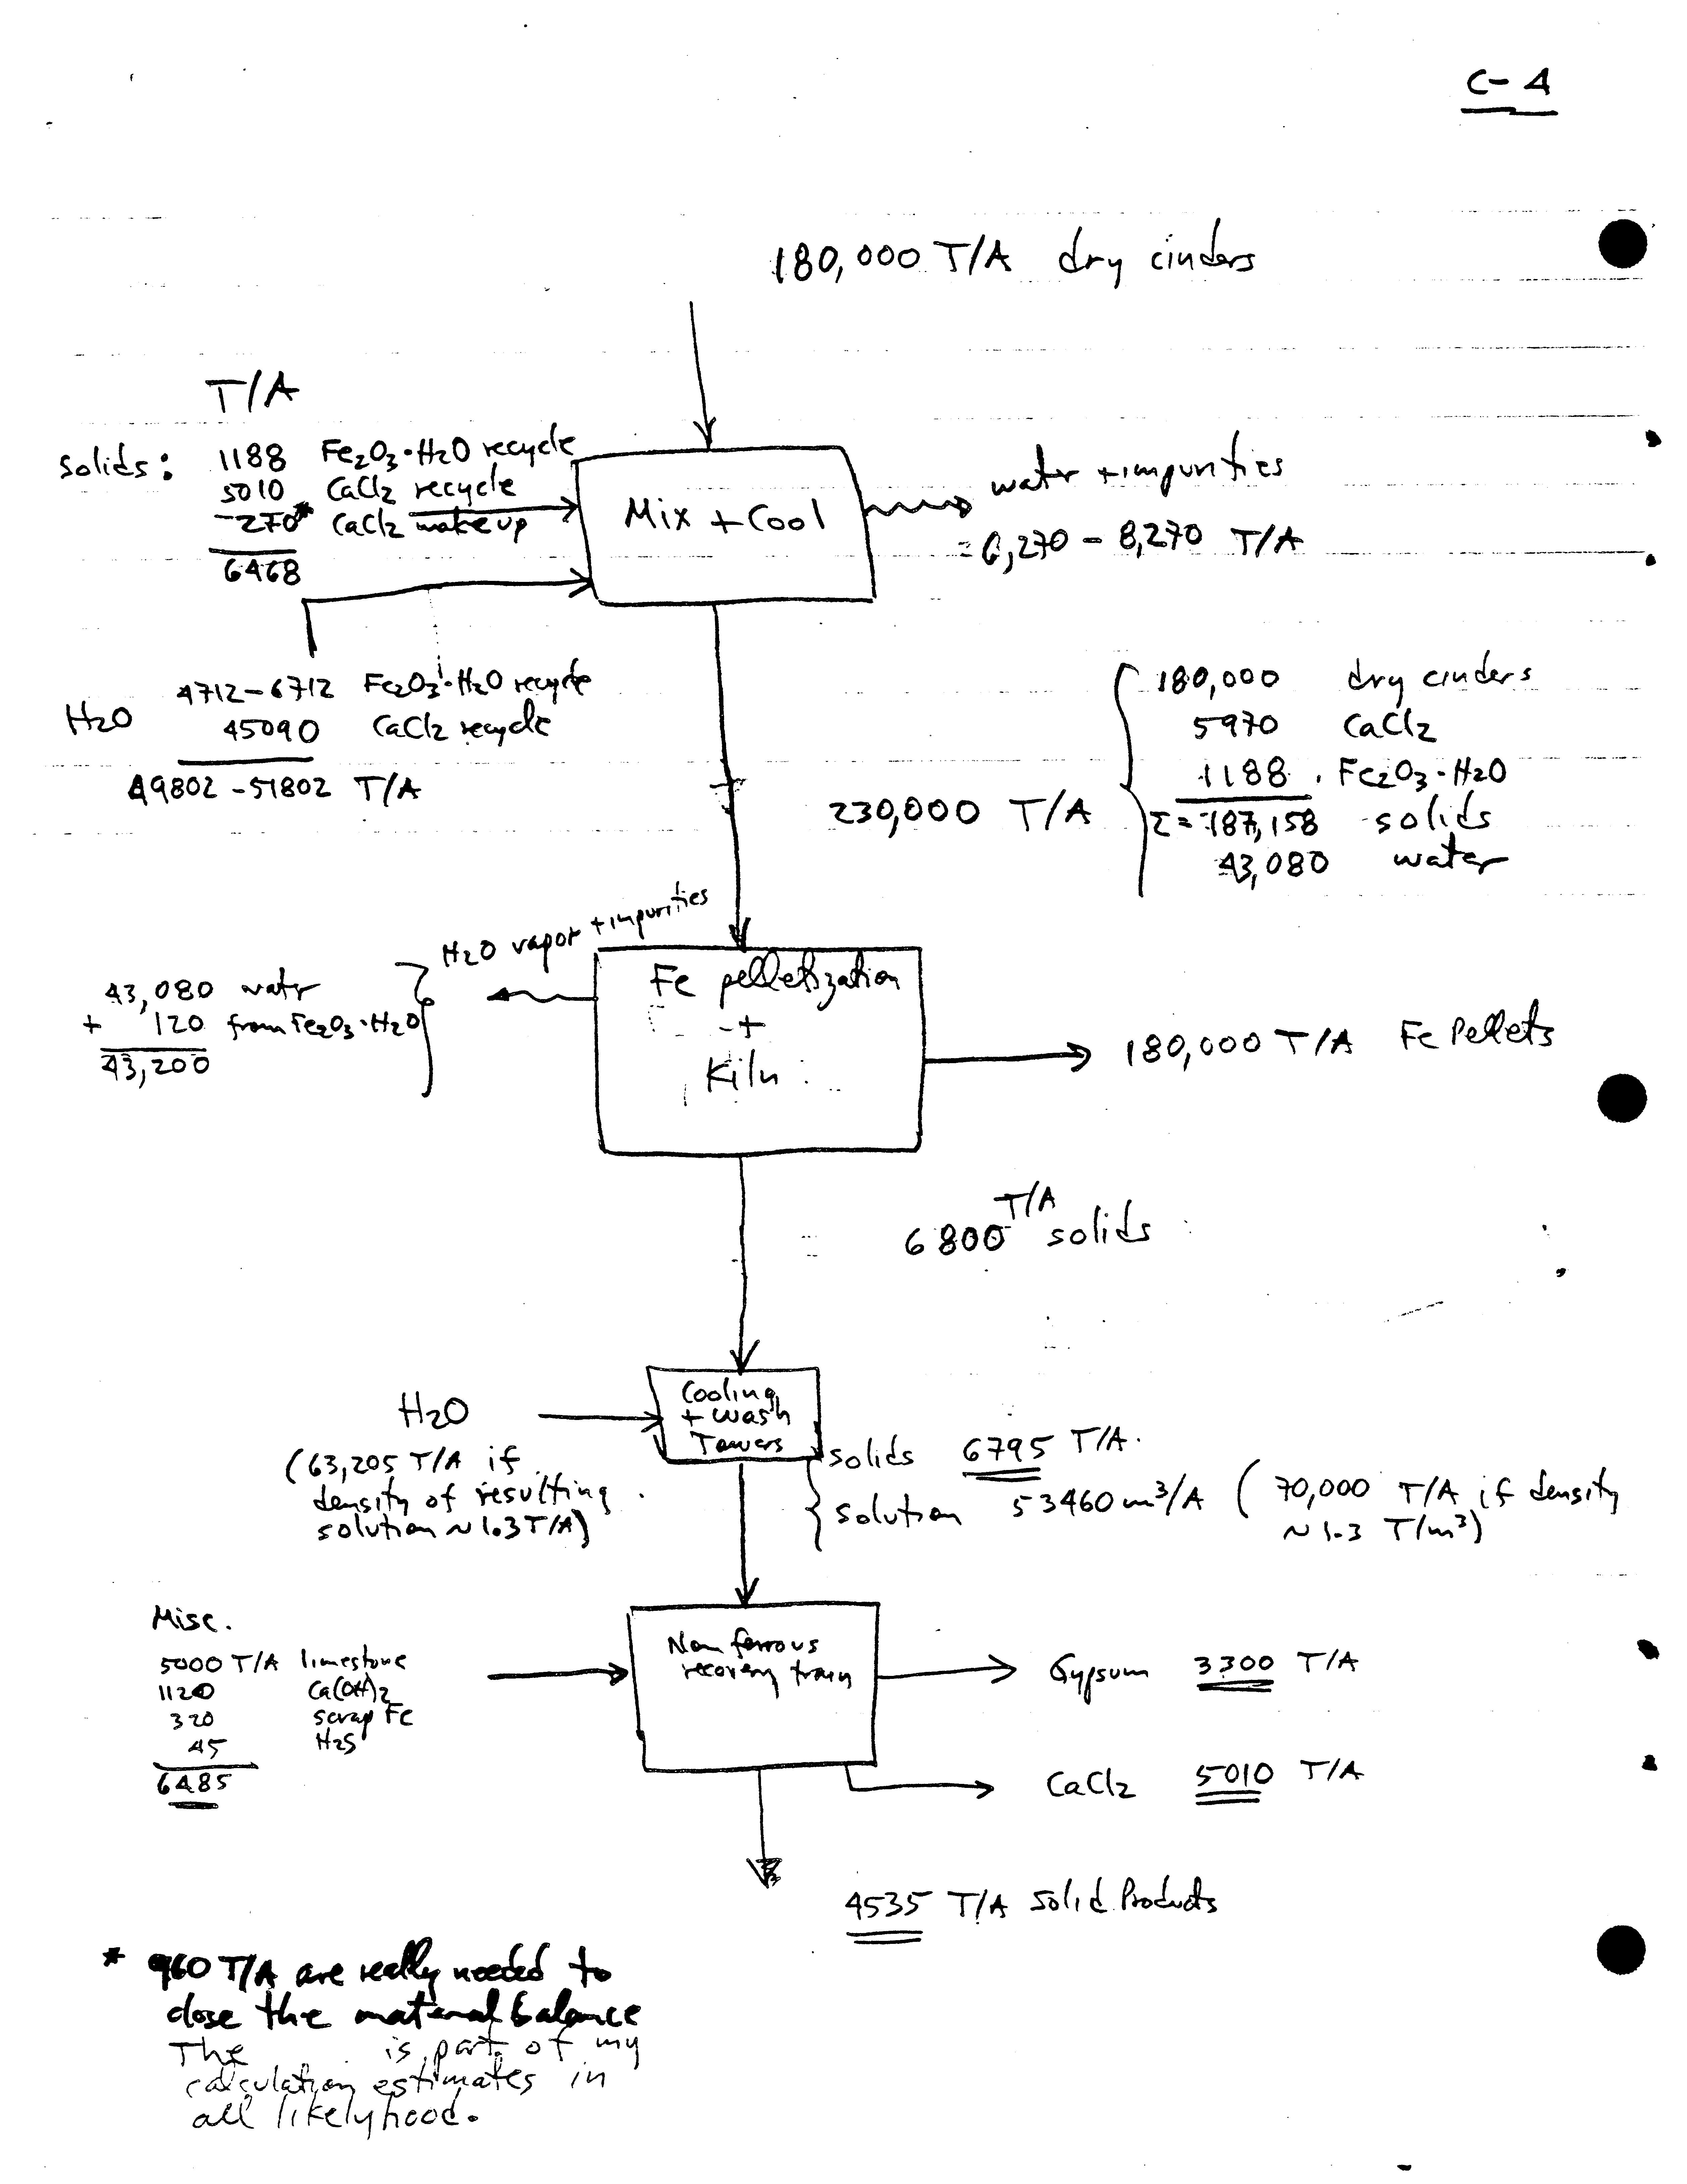 C-4
180,000 T/A dry cinders
T/A
solids: 1188 Fe2O3·H2O recycle
5010 CaCl2 recycle
270* CaCl2 make up
6468
Mix + Cool
water + impurities
= 6,270 - 8,270 T/A
H2O 4712-6712 Fe2O3·H2O recycle
45090 CaCl2 recycle
49802 - 51802 T/A
230,000 T/A
180,000 dry cinders
5970 CaCl2
1188 Fe2O3·H2O
Σ = 187,158 solids
43,080 water
H2O vapor + impurities
43,080 water
+ 120 from Fe2O3·H2O
43,200
Fe pelletization
+
Kiln
180,000 T/A Fe Pellets
6800 T/A solids
H2O
(63,205 T/A if
density of resulting
solution ~ 1.3 T/A)
Cooling
+ wash
Towers
solids 6795 T/A.
solution 53460 m3/A (70,000 T/A if density
~ 1.3 T/m3)
Misc.
5000 T/A limestone
1120 Ca(OH)2
320 scrap Fe
45 H2S
6485
Non ferrous
recovery train
Gypsum 3300 T/A
CaCl2 5010 T/A
4535 T/A Solid Products
* 960 T/A are really needed to
close the material balance
The is part of my
calculation estimates in
all likelyhood.